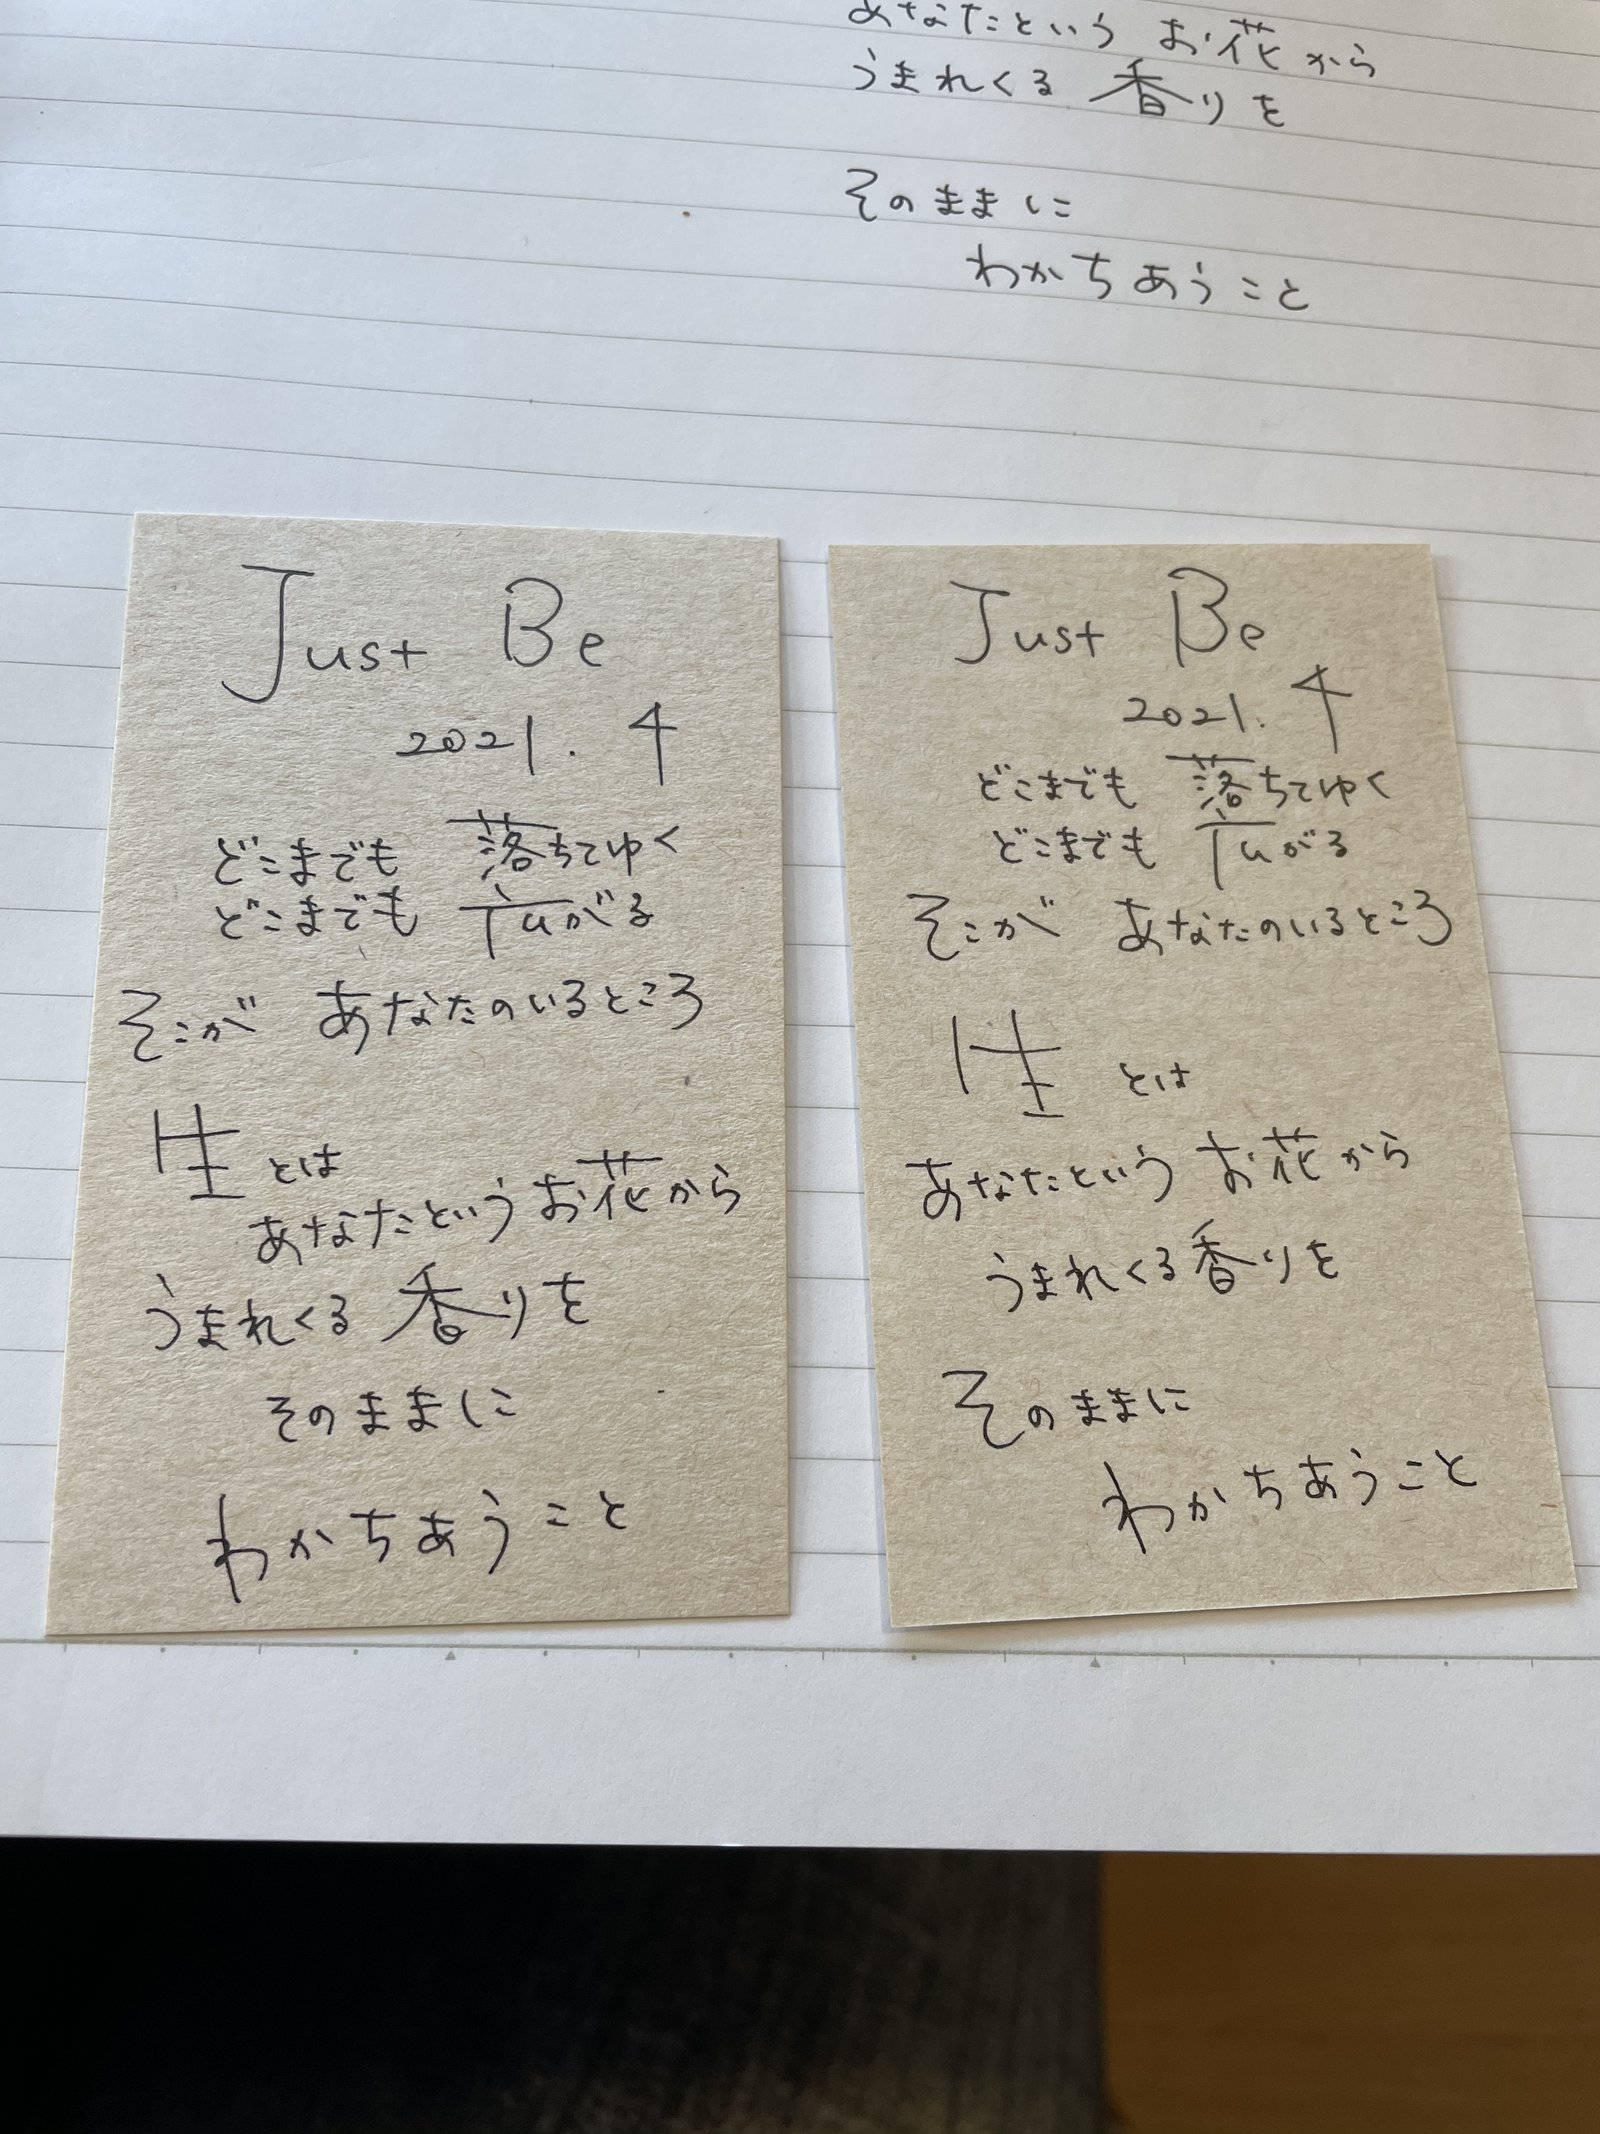 あなたという お花から
うまれくる 香りを
そのままに
わかちあうこと
Just Be
2021. 4
どこまでも 落ちてゆく
どこまでも 広がる
そこが あなたのいるところ
性 とは
あなたという お花から
うまれくる 香りを
そのままに
わかちあうこと
Just Be
2021. 4
どこまでも 落ちてゆく
どこまでも 広がる
そこが あなたのいるところ
性 とは
あなたという お花から
うまれくる 香りを
そのままに
わかちあうこと